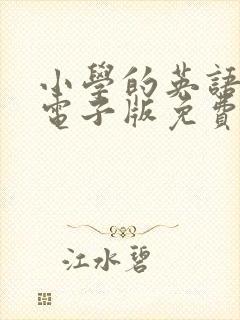 小學的英語
電子版免費
江水碧